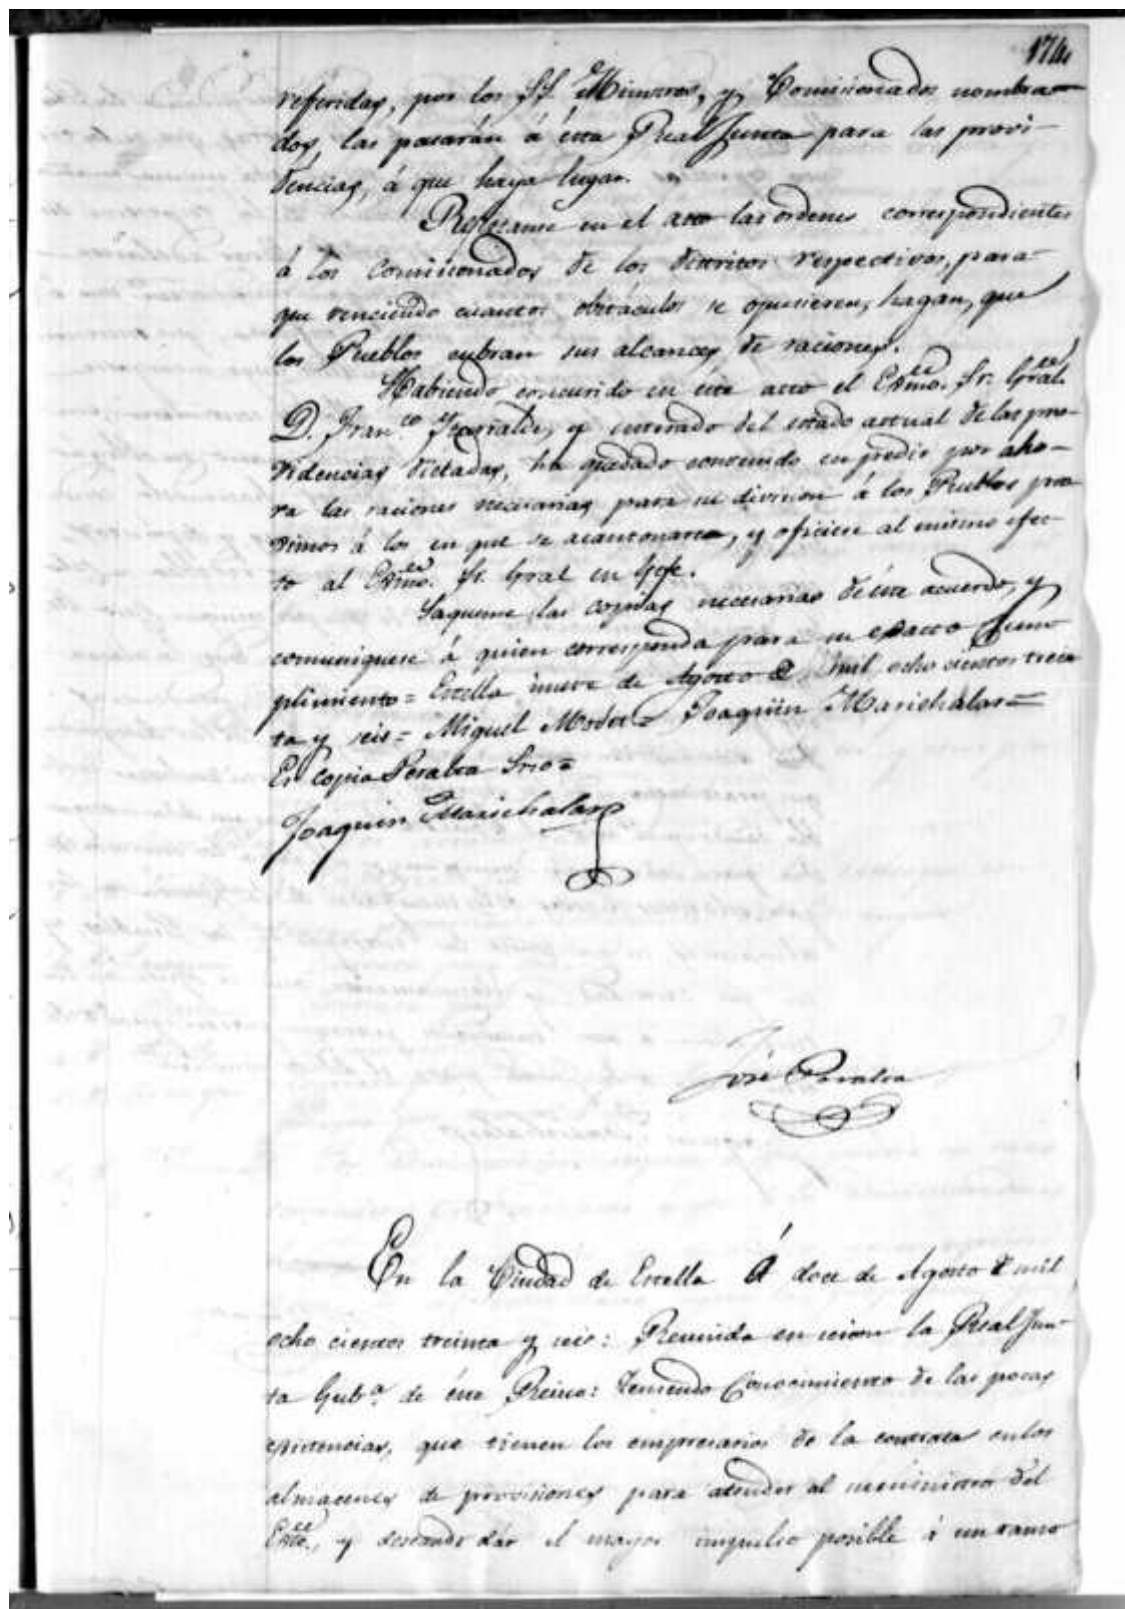 174
referidas, por los SS. Ministros, y Comisionados nombra-
dos, las pasarán á ésta Real Junta para las provi-
dencias, á que haya lugar.
Repitanse en el acto las ordenes correspondientes
á los comisionados de los distritos respectivos, para
que venciendo cuantos obstáculos se opusieren, hagan, que
los Pueblos cubran sus alcances de raciones.
Habiendo concurrido en este acto el Exmo. Sr. Gral.
D. Fran.co Yturralde, y enterado del estado actual de las pro-
videncias dictadas, ha quedado convenido en pedir por aho-
ra las raciones necesarias para su division á los Pueblos pro-
ximos á los en que se acantonare, y oficien al mismo efec-
to al Exmo. Sr. Gral en Gefe.
Saquense las copias necesarias de éste acuerdo, y
comuniquese á quien corresponda para su exacto cum-
plimiento = Estella nueve de Agosto de mil ocho cientos trein
ta y seis = Miguel Modet = Joaquin Marichalar =
Es copia Peralta Srio =
Joaquin Marichalar
José Peralta
En la Ciudad de Estella á doce de Agosto de mil
ocho cientos treinta y seis: Reunida en sesion la Real Jun-
ta Gub.a de éste Reino: Teniendo Conocimiento de las pocas
existencias, que tienen los empresarios de la contrata en los
almacenes de provisiones para atender al suministro del
Exto., y deseando dar el mayor impulso posible á un ramo